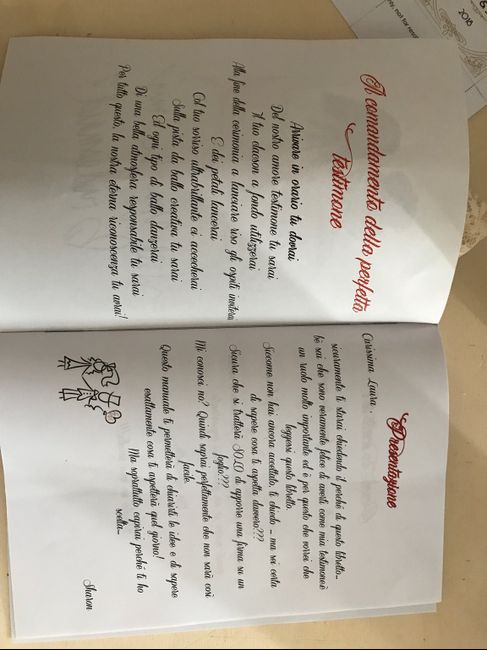 Il comandamento della perfetta
testimone
Arrivare in orario tu dovrai
Del nostro amore testimone tu sarai
Il tuo clacson a fondo utilizzerai
Alla fine della cerimonia a lanciare riso gli ospiti inviterai
E dei petali lancerai
Col tuo sorriso ultrabrillante ci accecherai
Sulla pista da ballo creativa tu sarai
Ed ogni tipo di ballo danzerai
Di una bella atmosfera responsabile tu sarai
Per tutto questo, la nostra eterna riconoscenza tu avrai!
Presentazione
Carissima Laura,
sicuramente ti starai chiedendo il perché di questo libretto...
be sai che sono veramente felice di averti come mia testimone è
un ruolo molto importante ed è per questo che vorrei che
leggessi questo libretto.
Siccome non hai ancora accettato, ti chiedo ... ma sei certa
di sapere cosa ti aspetta davvero???
Sicura che si tratterà SOLO di apporre una firma su un
foglio???
Mi conosci no? Quindi saprai perfettamente che non sarà così
facile.
Questo manuale ti permetterà di chiarirti le idee e di sapere
esattamente cosa ti aspetterà quel giorno!
Ma soprattutto capirai perché ti ho
scelta...
Sharon
2018